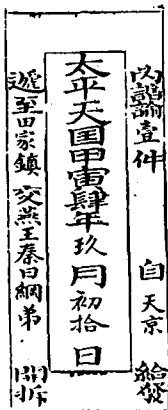 内諭壹件 自天京 給發
太平天囯甲寅肆年玖月初拾日
遞至田家鎮 交燕王秦日綱弟 開拆